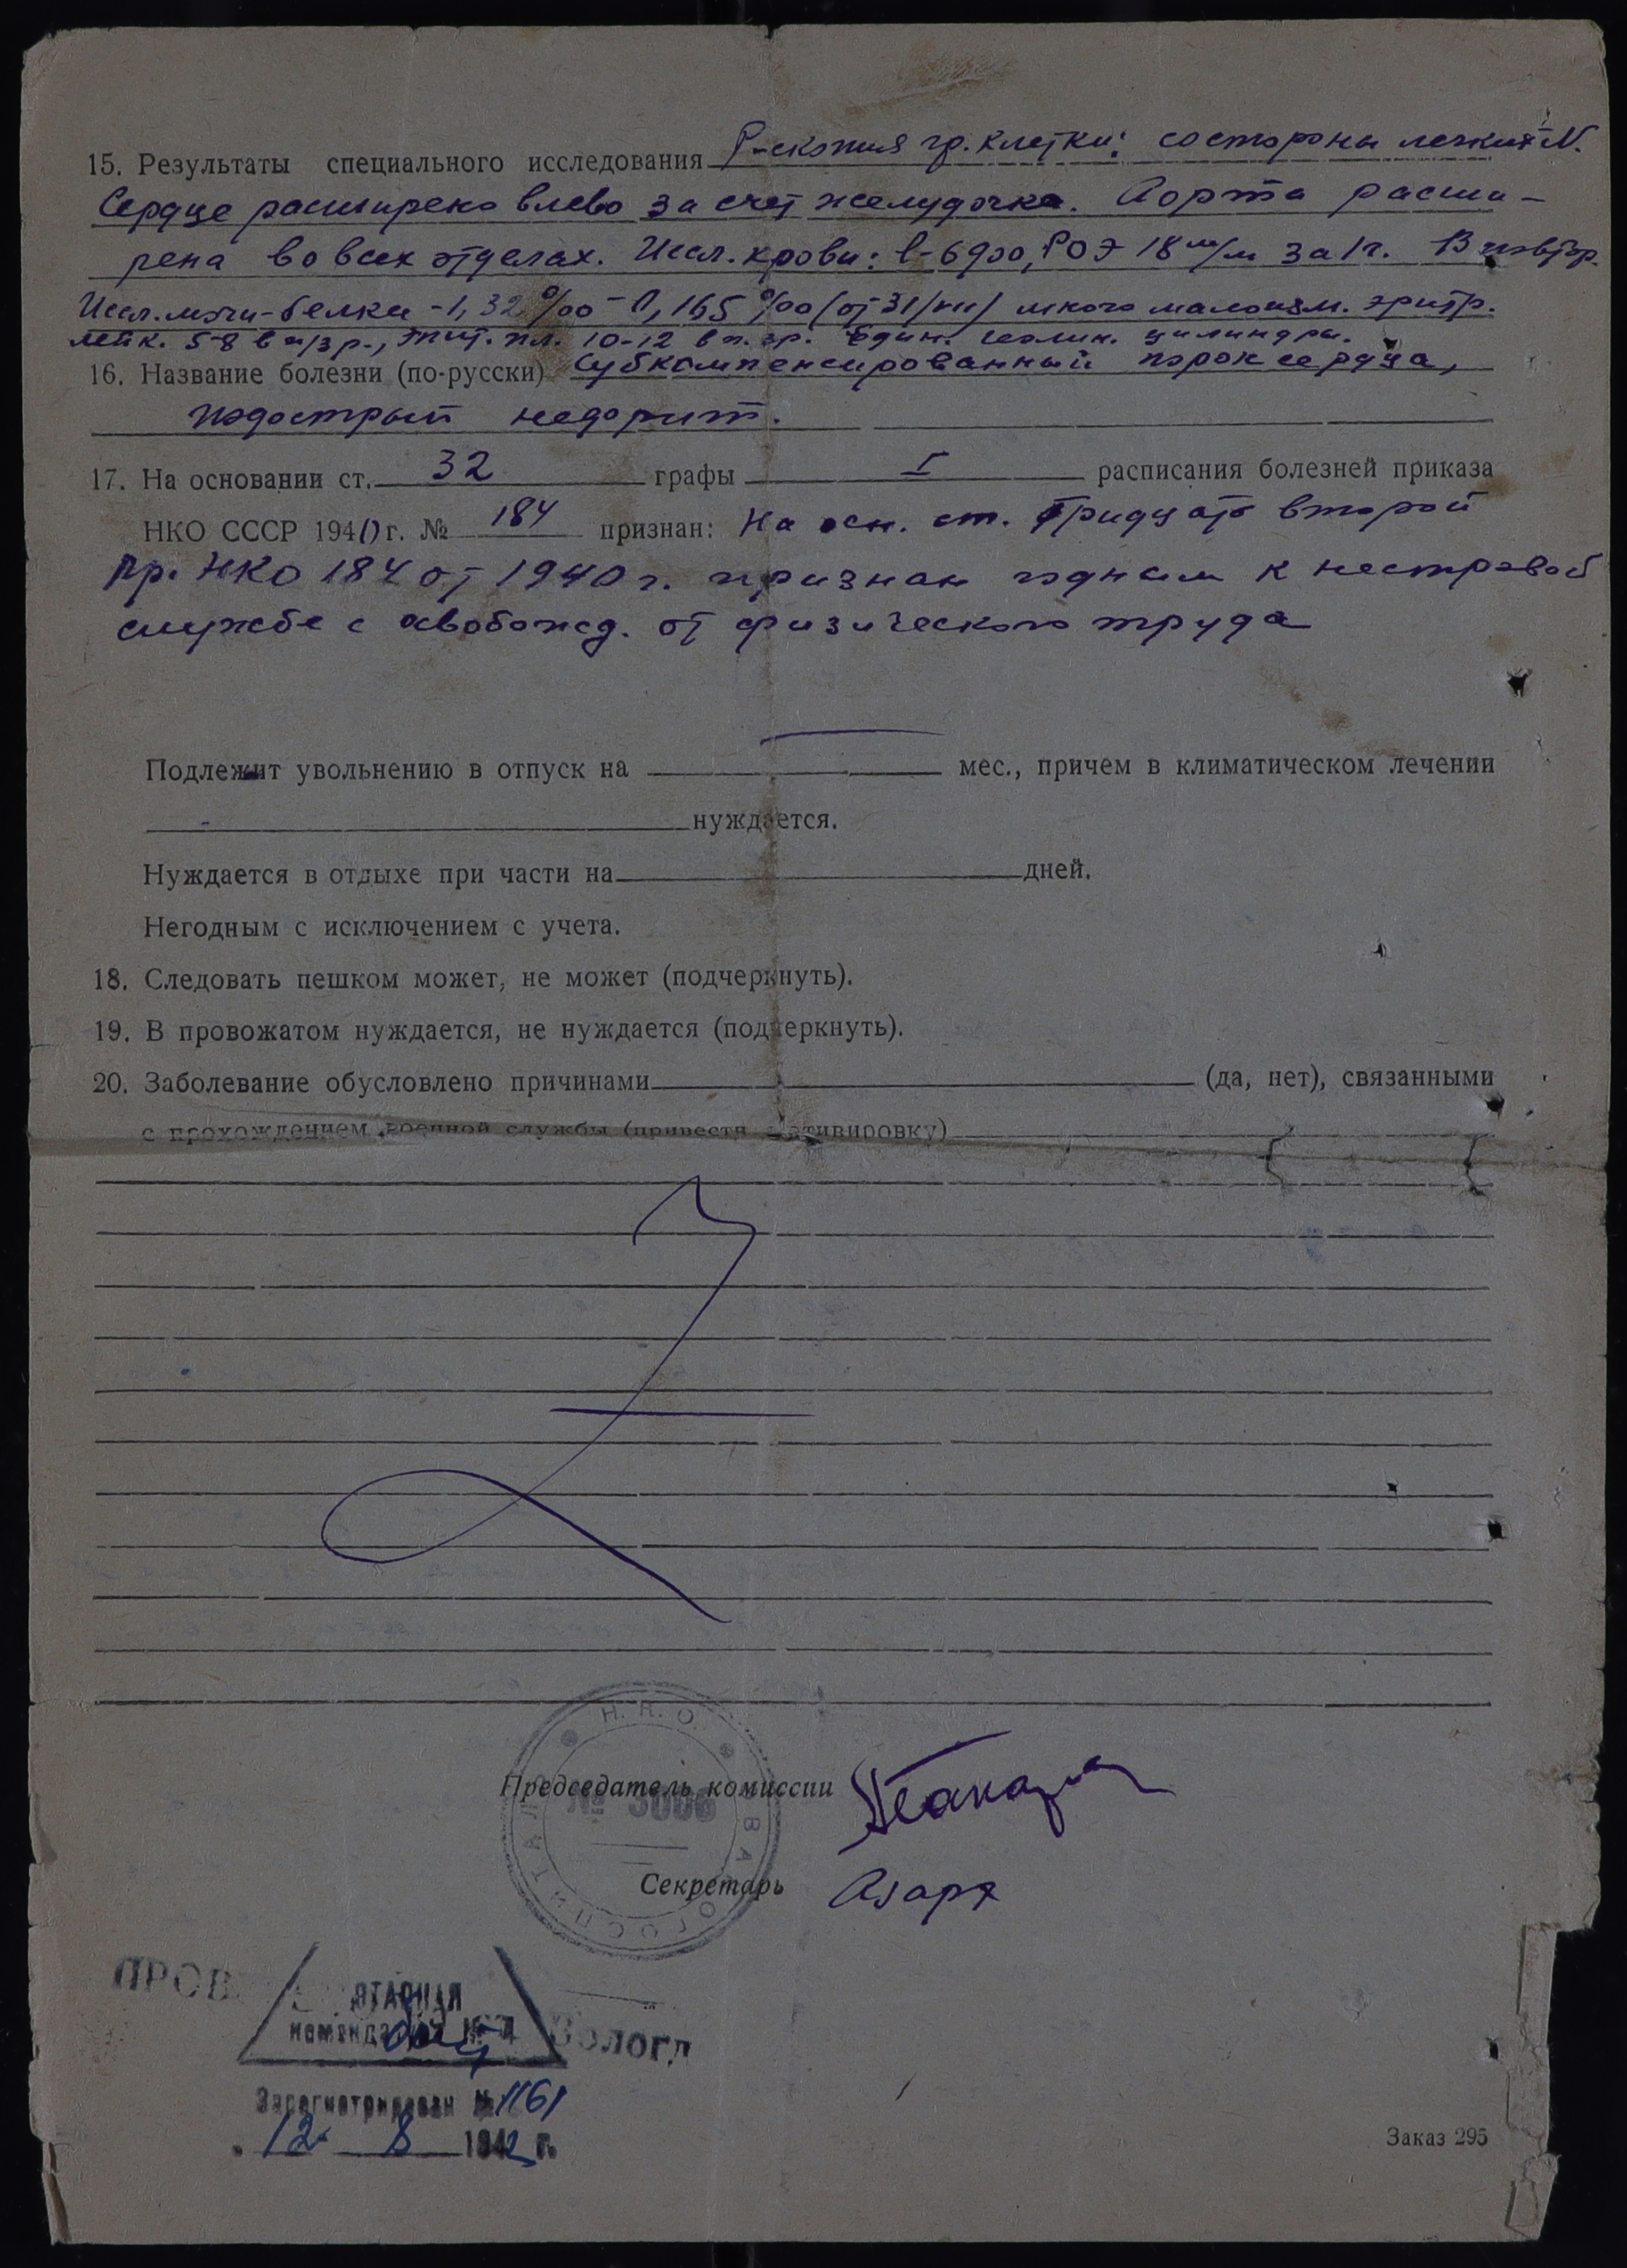 15. Результаты специального исследования Р-скопия гр. клетки: со стороны легких N.
Сердце расширено влево за счет желудочка. Аорта расши-
рена во всех отделах. Иссл. крови: l-6900, РОЭ 18 м/м за 1ч. В повтор.
Иссл. мочи - белка - 1,32 ‰ - 0,165 ‰ (от 31/VII) много малоизм. эритр.
лейк. 5-8 в п/зр., эпит. пл. 10-12 в п. зр. Един. гиалин. цилиндры.
16. Название болезни (по-русски) Субкомпенсированный порок сердца,
подострый нефрит.
17. На основании ст. 32 графы I расписания болезней приказа
НКО СССР 1940 г. № 184 признан: На осн. ст. тридцать второй
Пр. НКО 184 от 1940 г. признан годным к нестроевой
службе с освобожд. от физического труда
Подлежит увольнению в отпуск на — мес., причем в климатическом лечении
нуждается.
Нуждается в отдыхе при части на дней.
Негодным с исключением с учета.
18. Следовать пешком может, не может (подчеркнуть).
19. В провожатом нуждается, не нуждается (подчеркнуть).
20. Заболевание обусловлено причинами (да, нет), связанными
с прохождением военной службы (привести мотивировку)
Н. К. О.
Председатель комиссии
№ 3006
Секретарь Азаря
ПРОВ
ЭТАПНАЯ
комендатура № 4 Вологд
Зарегистрирован № 1161
12 8 1942 г.
Заказ 295